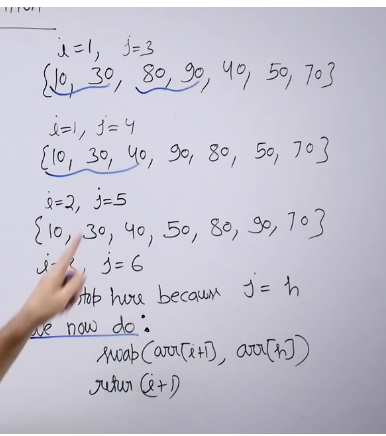 i=1, j=3
{10, 30, 80, 90, 40, 50, 70}
i=1, j=4
{10, 30, 40, 90, 80, 50, 70}
i=2, j=5
{10, 30, 40, 50, 80, 90, 70}
j=6
here because j=h
now do:
swap(arr[i+1], arr[h])
return (i+1)